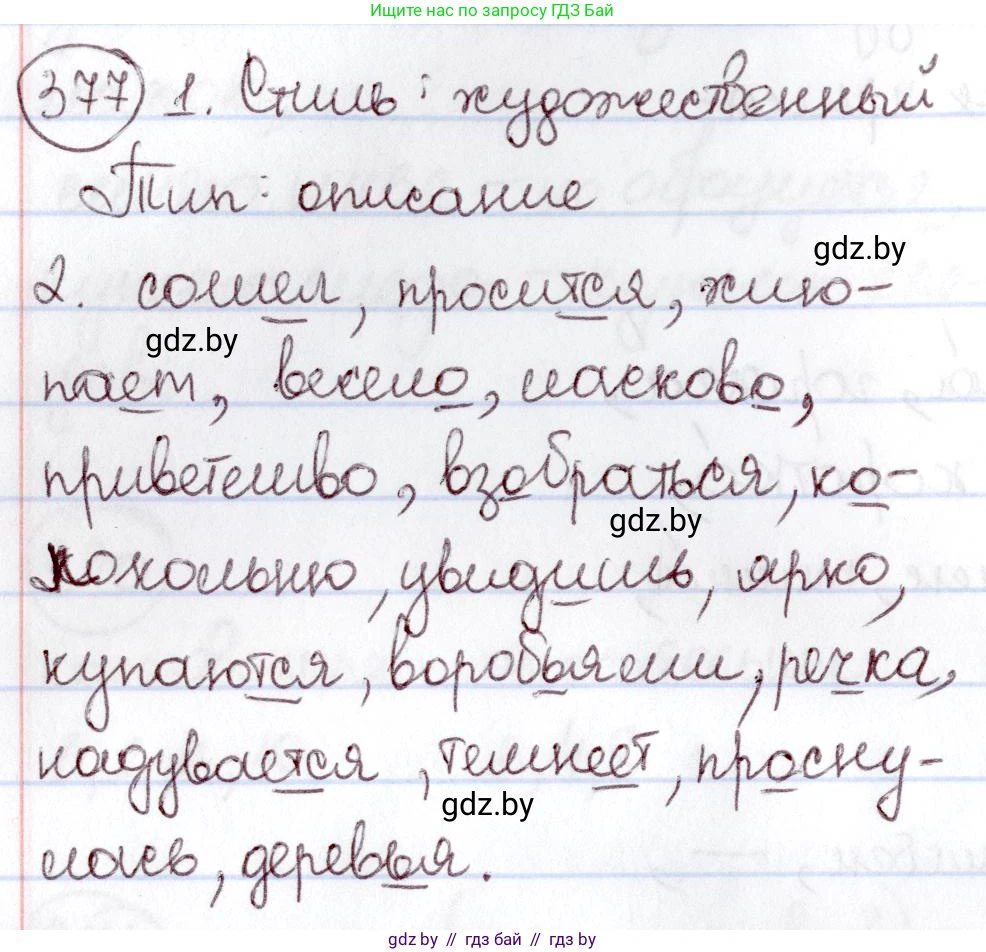 Ищите нас по запросу ГДЗ Бай
377 1. Стиль: художественный
Тип: описание
gdz.by
2. сошел, просится, хлю-
gdz.by
пает, весело, ласково,
приветливо, взобраться, ко-
gdz.by
локольню, увидишь, ярко,
купаются, воробьями, речка,
надувается, темнеет, просну-
gdz.by
лась, деревья.
gdz.by // гдз бай // гдз by